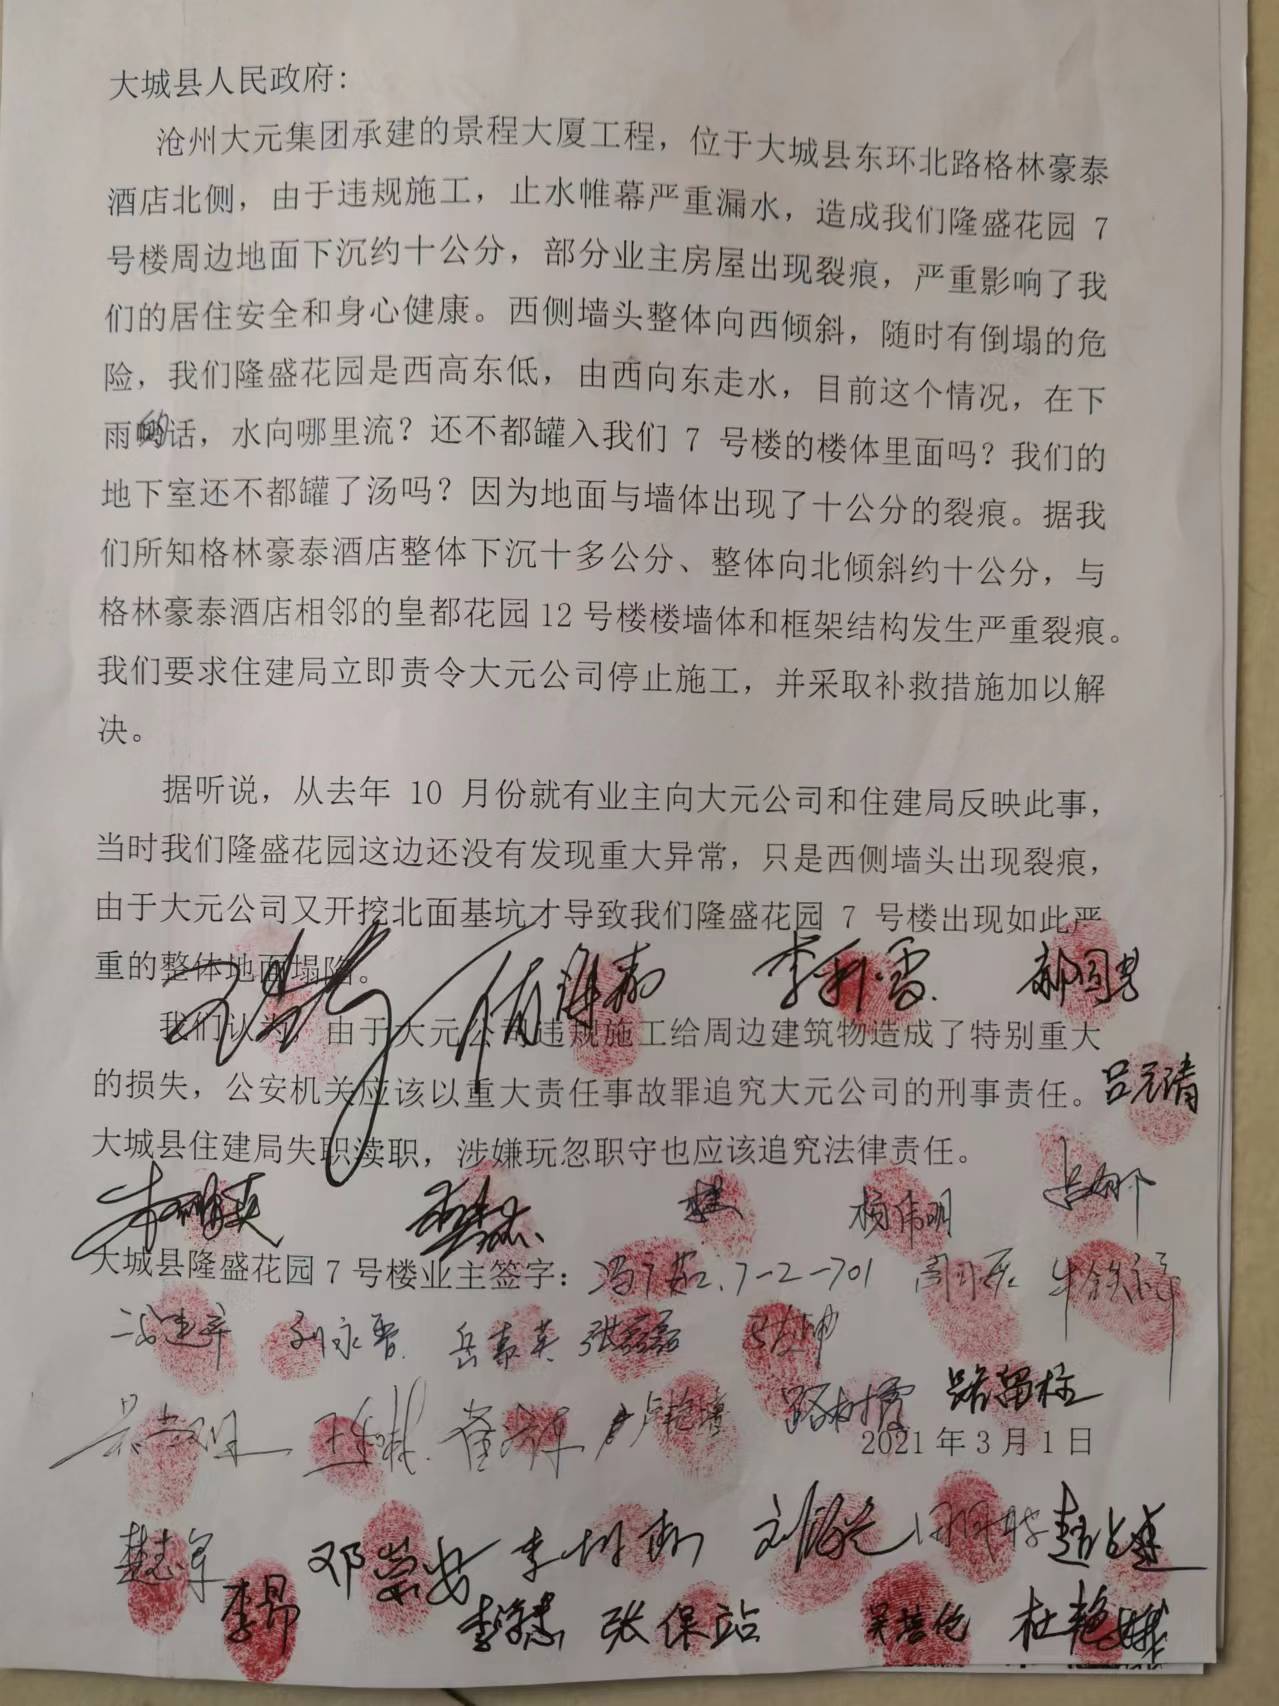 大城县人民政府：
沧州大元集团承建的景程大厦工程，位于大城县东环北路格林豪泰
酒店北侧，由于违规施工，止水帷幕严重漏水，造成我们隆盛花园 7
号楼周边地面下沉约十公分，部分业主房屋出现裂痕，严重影响了我
们的居住安全和身心健康。西侧墙头整体向西倾斜，随时有倒塌的危
险，我们隆盛花园是西高东低，由西向东走水，目前这个情况，在下
雨的话，水向哪里流？还不都罐入我们 7 号楼的楼体里面吗？我们的
地下室还不都罐了汤吗？因为地面与墙体出现了十公分的裂痕。据我
们所知格林豪泰酒店整体下沉十多公分、整体向北倾斜约十公分，与
格林豪泰酒店相邻的皇都花园 12 号楼楼墙体和框架结构发生严重裂痕。
我们要求住建局立即责令大元公司停止施工，并采取补救措施加以解
决。
据听说，从去年 10 月份就有业主向大元公司和住建局反映此事，
当时我们隆盛花园这边还没有发现重大异常，只是西侧墙头出现裂痕，
由于大元公司又开挖北面基坑才导致我们隆盛花园 7 号楼出现如此严
重的整体地面塌陷。
李利雪 郝国芳
我们认为，由于大元公司违规施工给周边建筑物造成了特别重大
的损失，公安机关应该以重大责任事故罪追究大元公司的刑事责任。
吕元清
大城县住建局失职渎职，涉嫌玩忽职守也应该追究法律责任。
杨伟明 吕娜
大城县隆盛花园 7 号楼业主签字：7-2-701
刘永智 岳素英 张磊磊
路留柱
2021 年 3 月 1 日
楚志军 邓崇安
李昂 张保站 吴培伦 杜艳娥